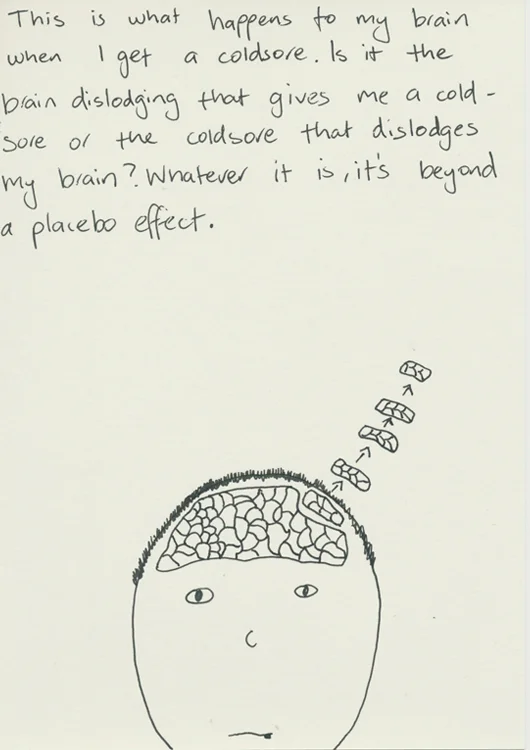 This is what happens to my brain
when I get a coldsore. Is it the
brain dislodging that gives me a cold-
sore or the coldsore that dislodges
my brain? Whatever it is, it's beyond
a placebo effect.